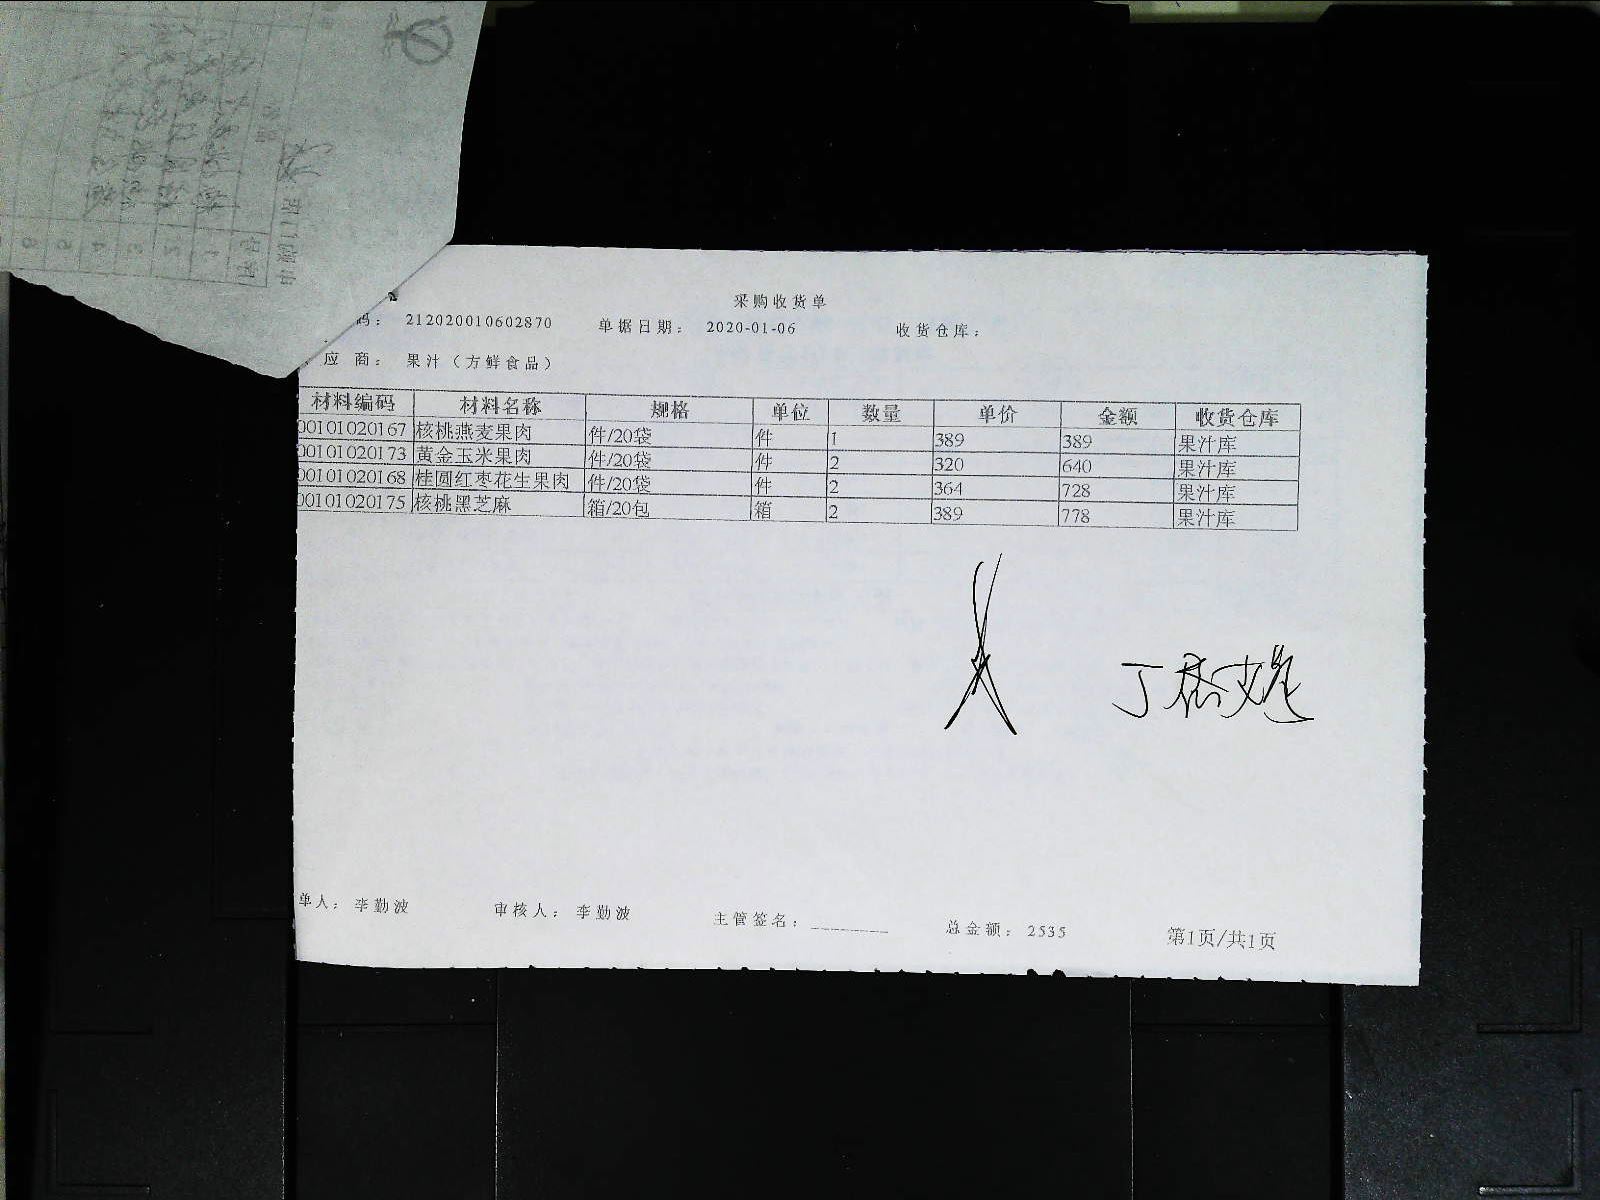 采购收货单
码： 212020010602870 单据日期： 2020-01-06 收货仓库：
应 商： 果汁（方鲜食品）
材料编码 材料名称 规格 单位 数量 单价 金额 收货仓库
00101020167 核桃燕麦果肉 件/20袋 件 1 389 389 果汁库
00101020173 黄金玉米果肉 件/20袋 件 2 320 640 果汁库
00101020168 桂圆红枣花生果肉 件/20袋 件 2 364 728 果汁库
00101020175 核桃黑芝麻 箱/20包 箱 2 389 778 果汁库
单人： 李勤波 审核人： 李勤波 主管签名： 总金额： 2535 第1页/共1页